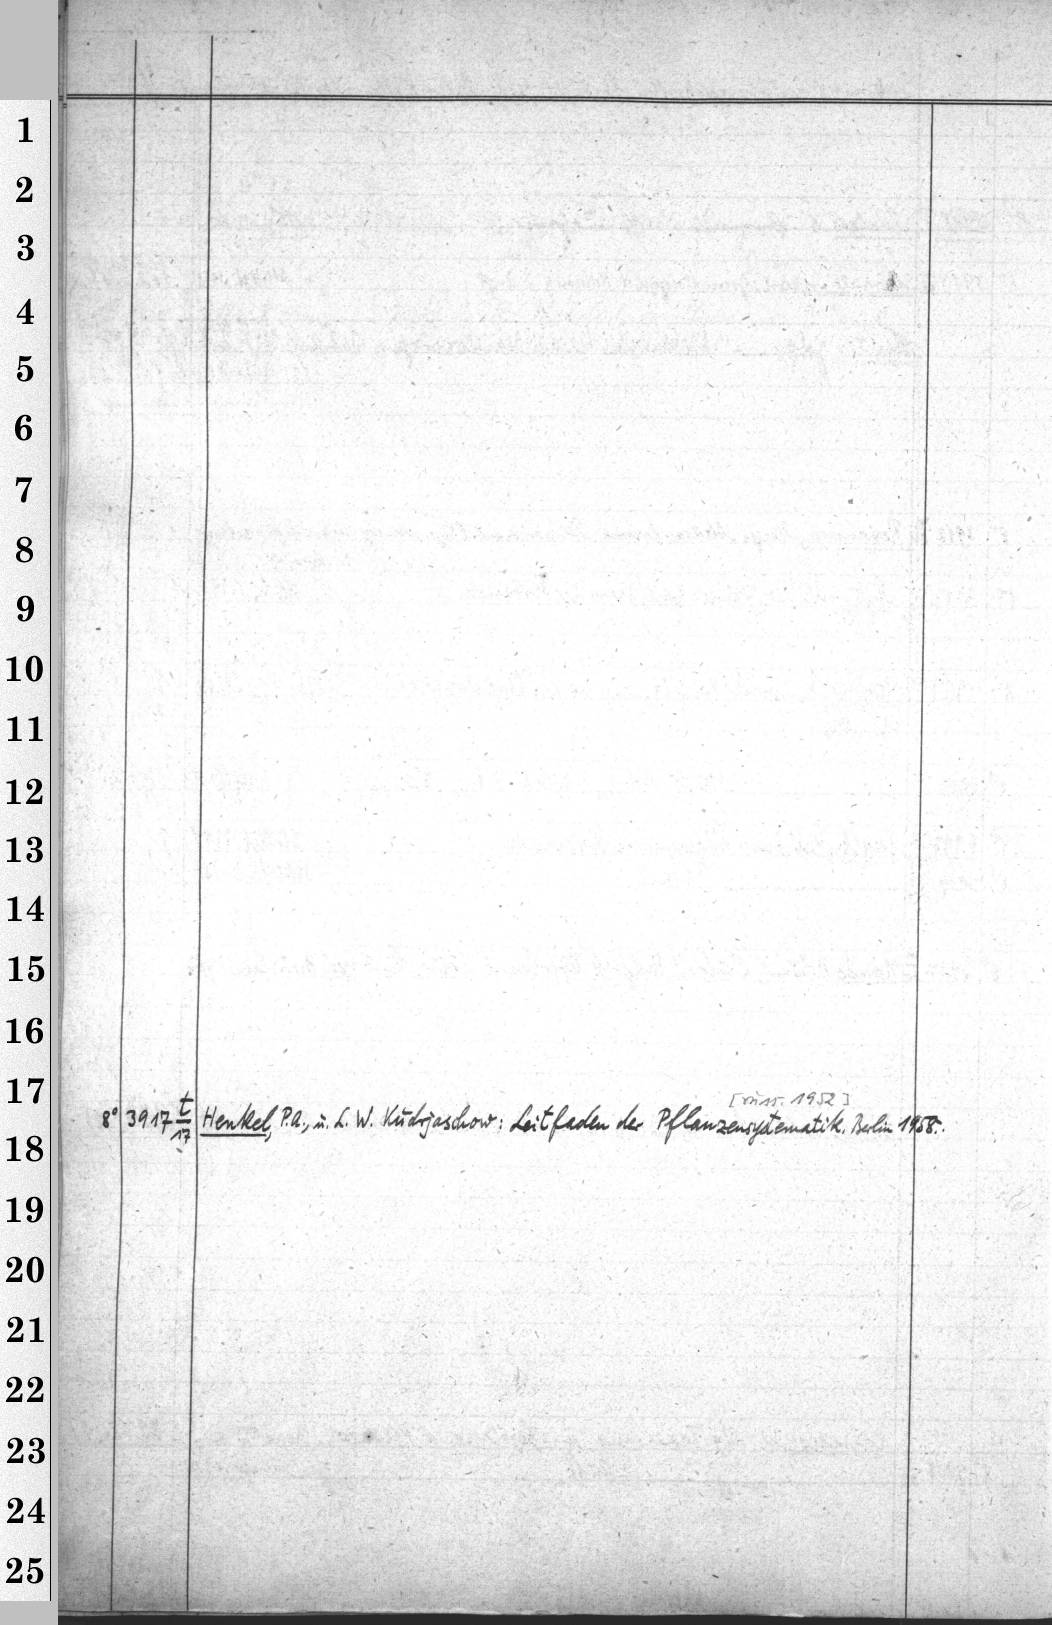 1
2
3
4
5
6
7
8
9
10
11
12
13
14
15
16
17
[russ. 1952]
8° 3917 t/17 Henkel, P.A., u. L. W. Kudrjaschow: Leitfaden der Pflanzensystematik. Berlin 1958.
18
19
20
21
22
23
24
25